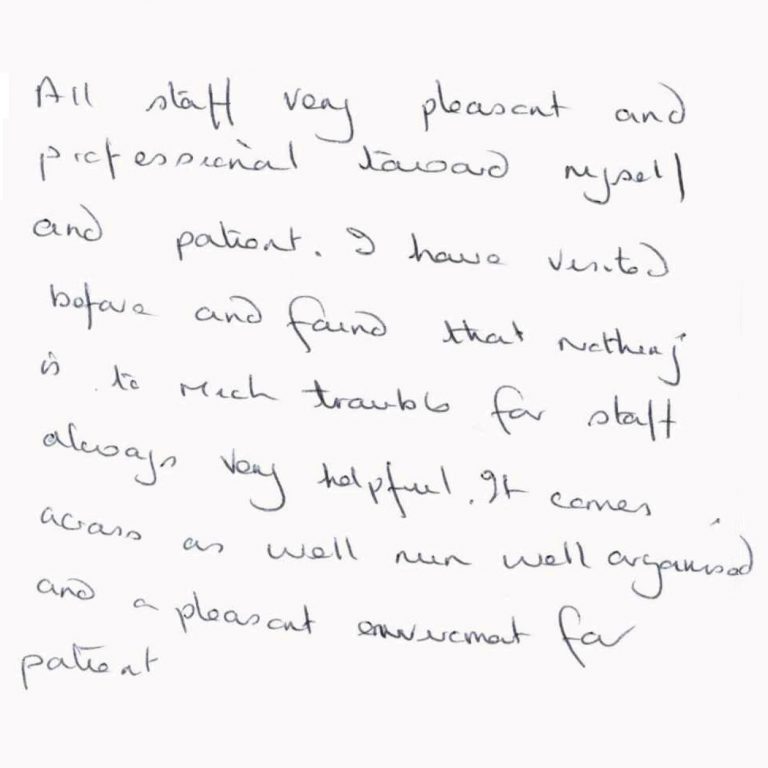 All staff very pleasant and
professional toward myself
and patient. I have visited
before and found that nothing
is to much trouble for staff
always very helpful. It comes
across as well run well organised
and a pleasant enviroment for
patient